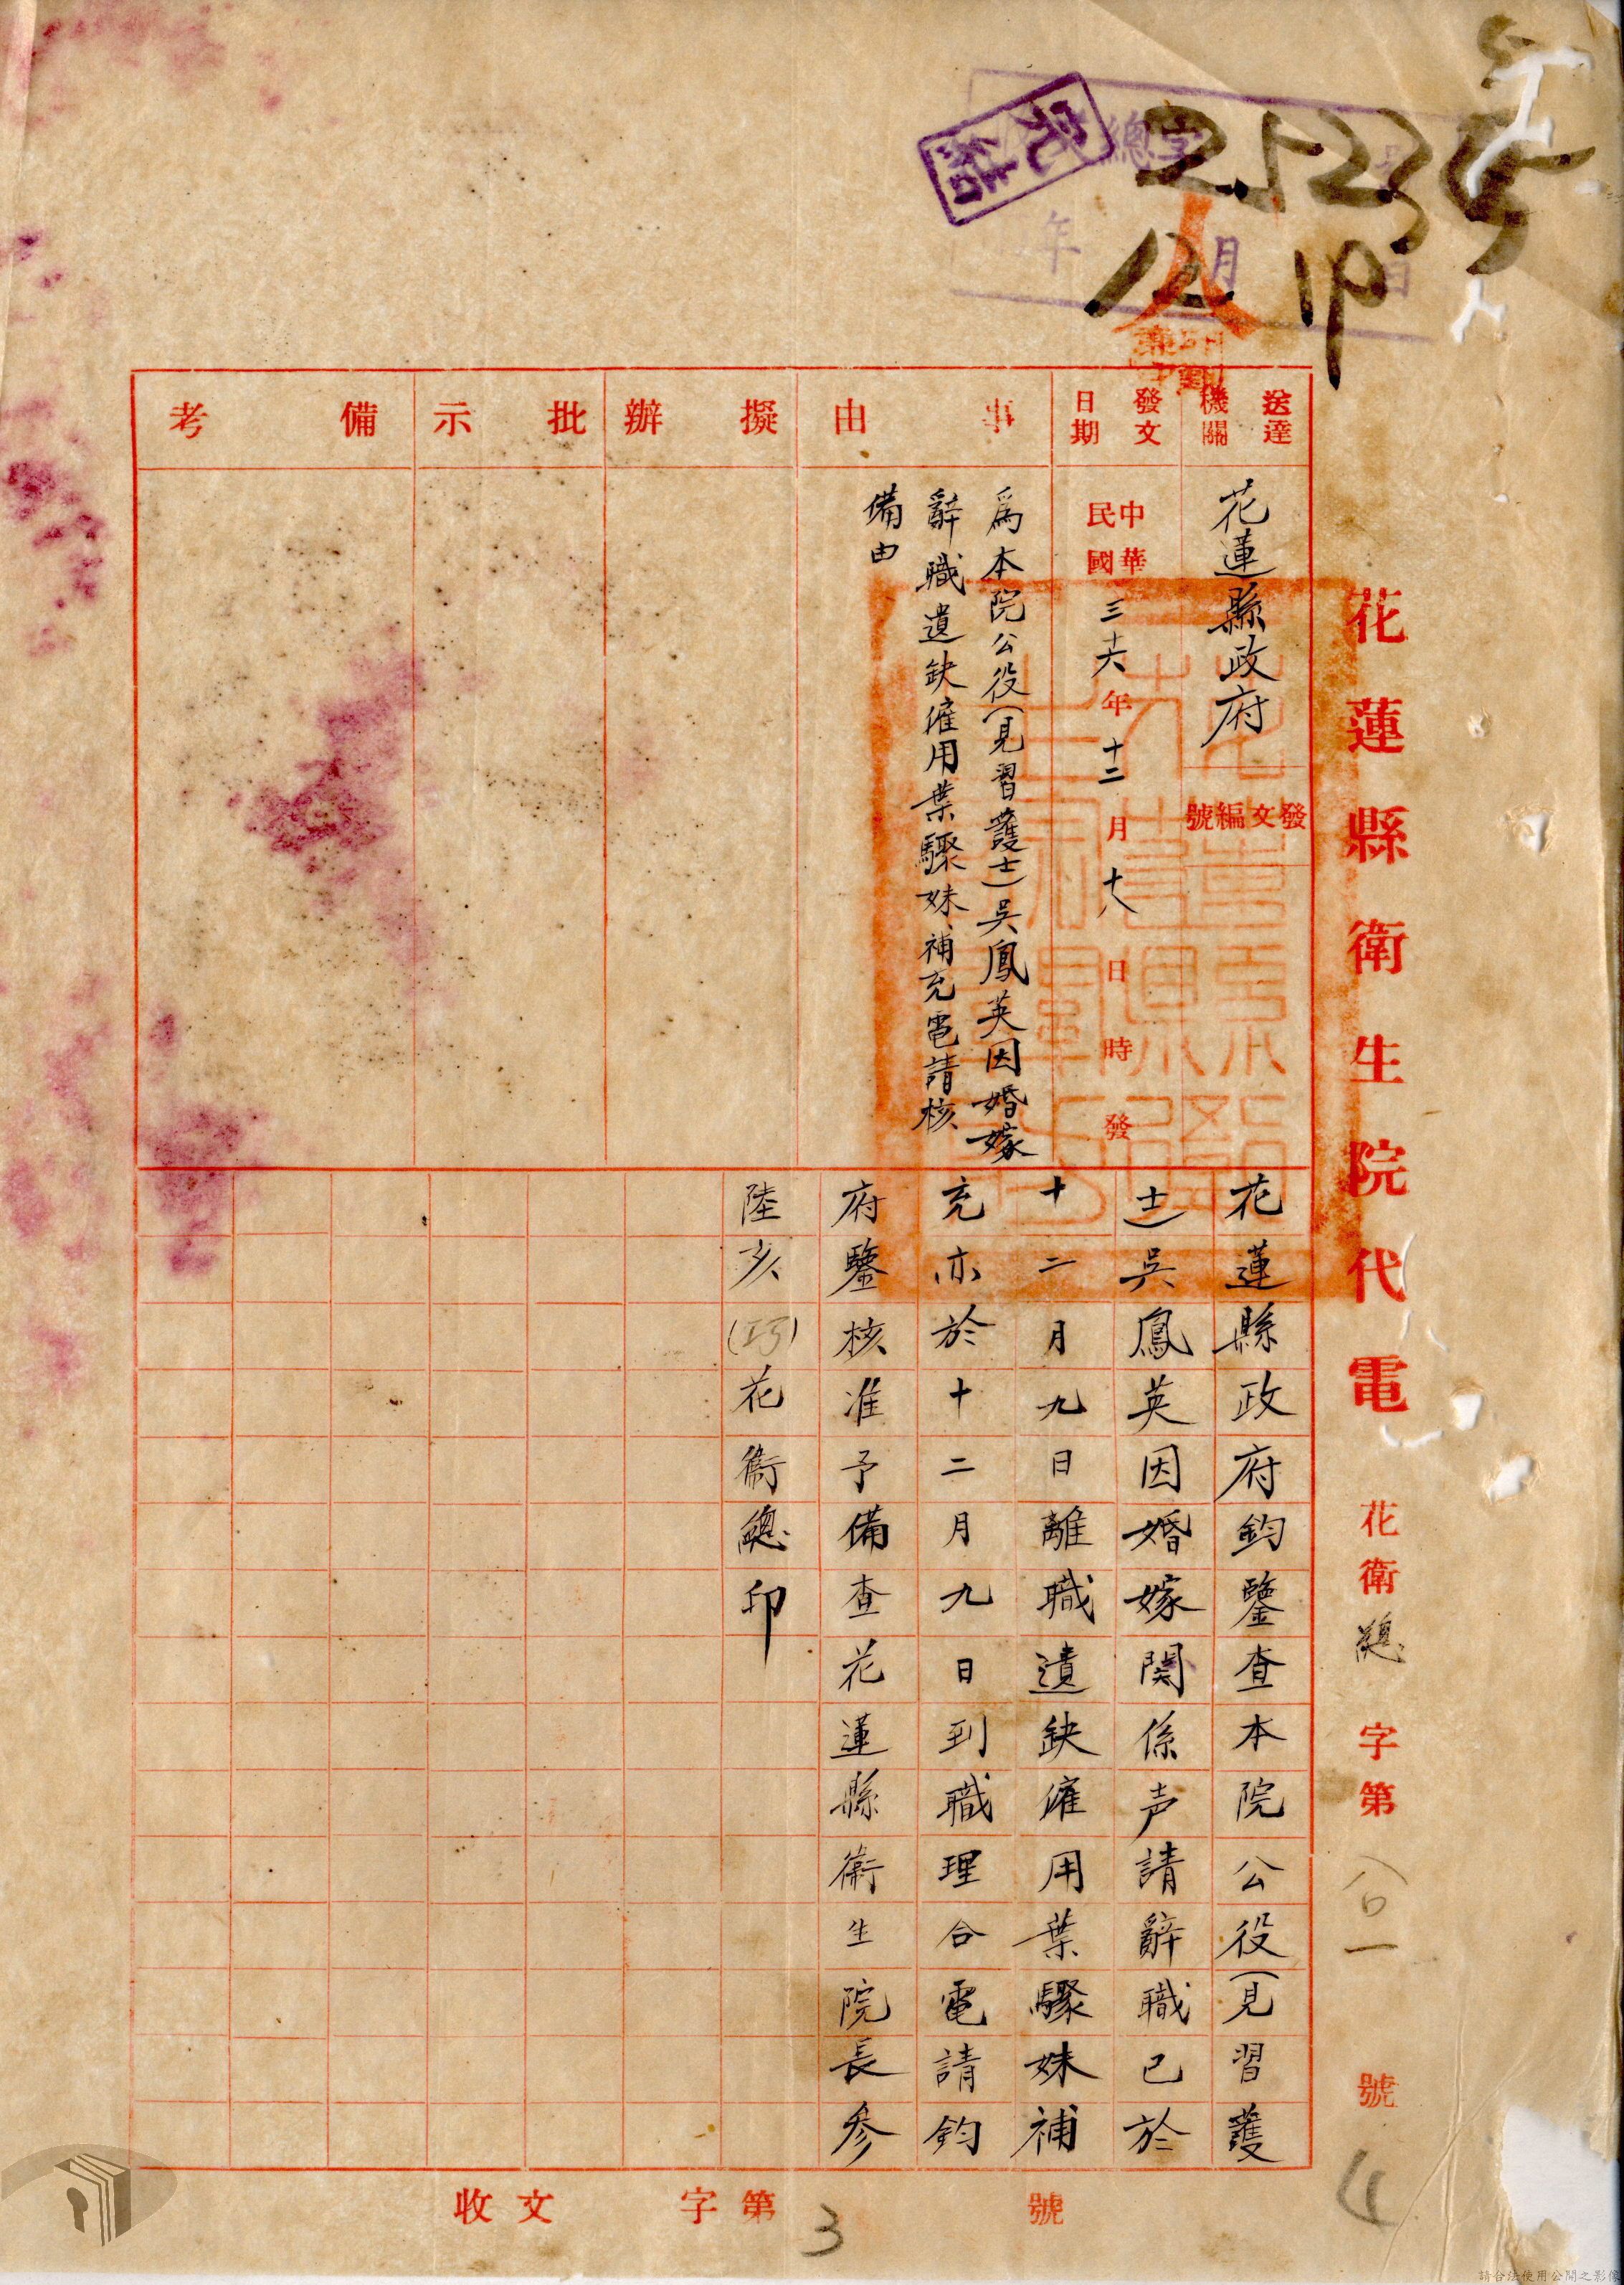 完結
總字 25235 號
年 12月 19日
花蓮縣衛生院代電 花衛總字第八〇一號
送達機關
花蓮縣政府
發文編號
發文日期
中華民國三十六年十二月十八日 時發
事由
為本院公役(見習護士)吳鳳英因婚嫁
辭職遺缺僱用葉驟妹補充電請核
備由
擬辦
批示
備考
花蓮縣政府鈞鑒查本院公役(見習護
士)吳鳳英因婚嫁関係声請辭職已於
十二月九日離職遺缺僱用葉驟妹補
充亦於十二月九日到職理合電請鈞
府鑒核准予備查花蓮縣衛生院長參
陸亥(巧)花衛總印
收文 字第 號
3
4
請合法使用公開之影像